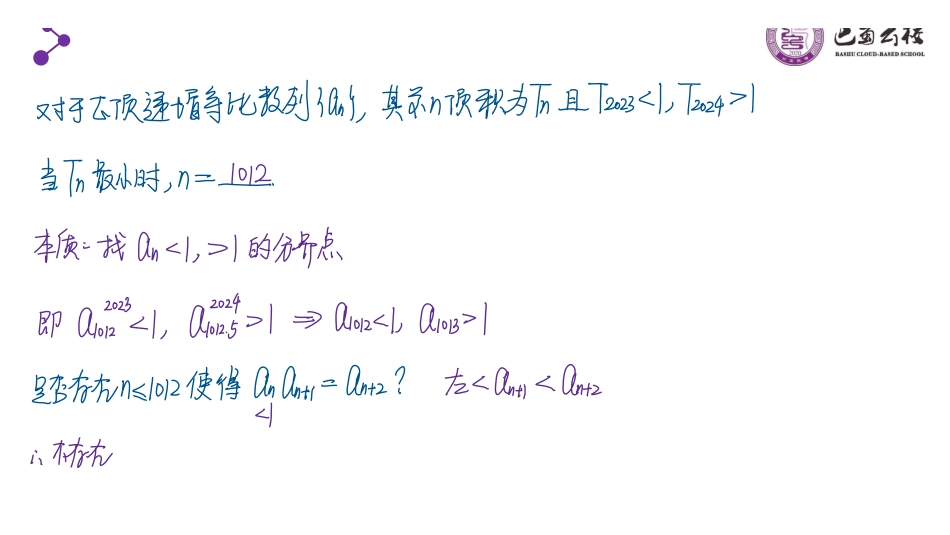 巴蜀云校
BASHU CLOUD-BASED SCHOOL
2020
对于正项递增等比数列{an}, 其前n项积为Tn 且 T2023<1, T2024>1
当Tn最小时, n=1012.
本质: 找 an<1, >1 的分界点
即 a1012^2023<1, a1012.5^2024>1 ⇒ a1012<1, a1013>1
是否存在n≤1012使得 an an+1 = an+2? 左<an+1<an+2
<1
∴ 不存在